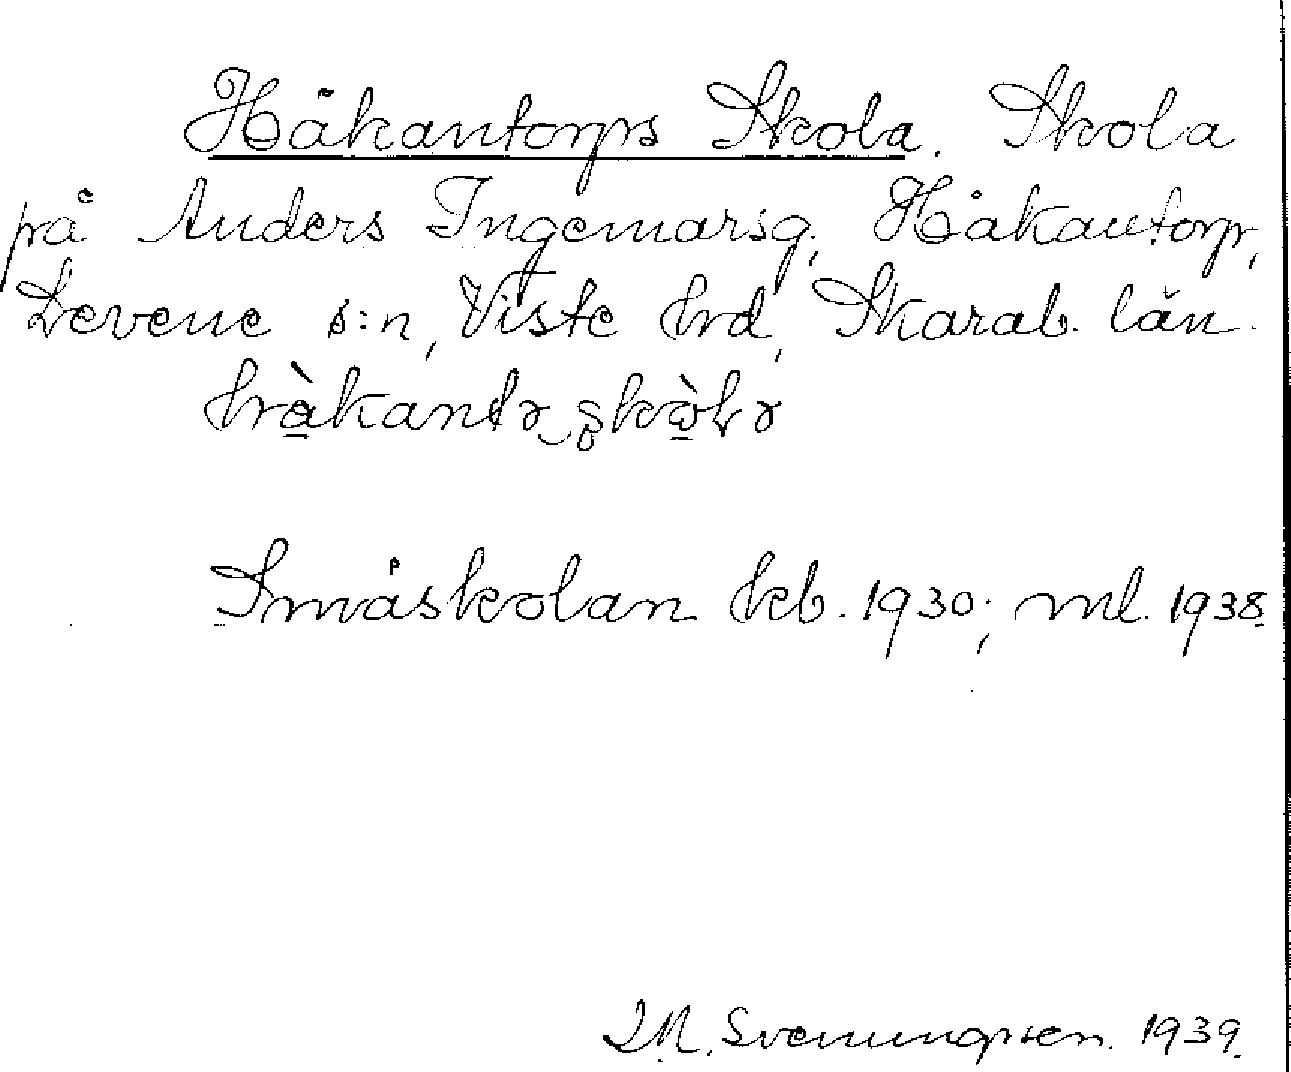 Håkantorps Skola. Skola
på Anders Ingemarsg, Håkantorp,
Levene s:n, Viste hrd, Skarab. län.
Småskolan kb. 1930; ml. 1938
Svenungsson. 1939.